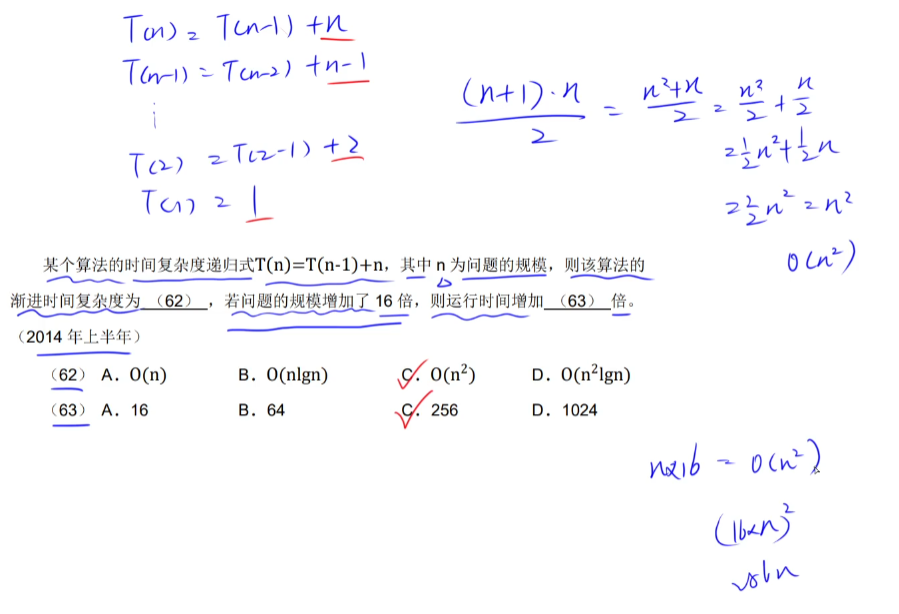 T(n) = T(n-1) + n
T(n-1) = T(n-2) + n-1
⋮
T(2) = T(2-1) + 2
T(1) = 1
(n+1)·n / 2 = n²+n / 2 = n²/2 + n/2
= 1/2 n² + 1/2 n
n² = n²
O(n²)
某个算法的时间复杂度递归式T(n)=T(n-1)+n，其中 n 为问题的规模，则该算法的
渐进时间复杂度为 （62） ，若问题的规模增加了 16 倍，则运行时间增加 （63） 倍。
（2014 年上半年）
（62） A．O(n) B．O(nlgn) C．O(n²) D．O(n²lgn)
（63） A．16 B．64 C．256 D．1024
n×16 = O(n²)
(16×n)²